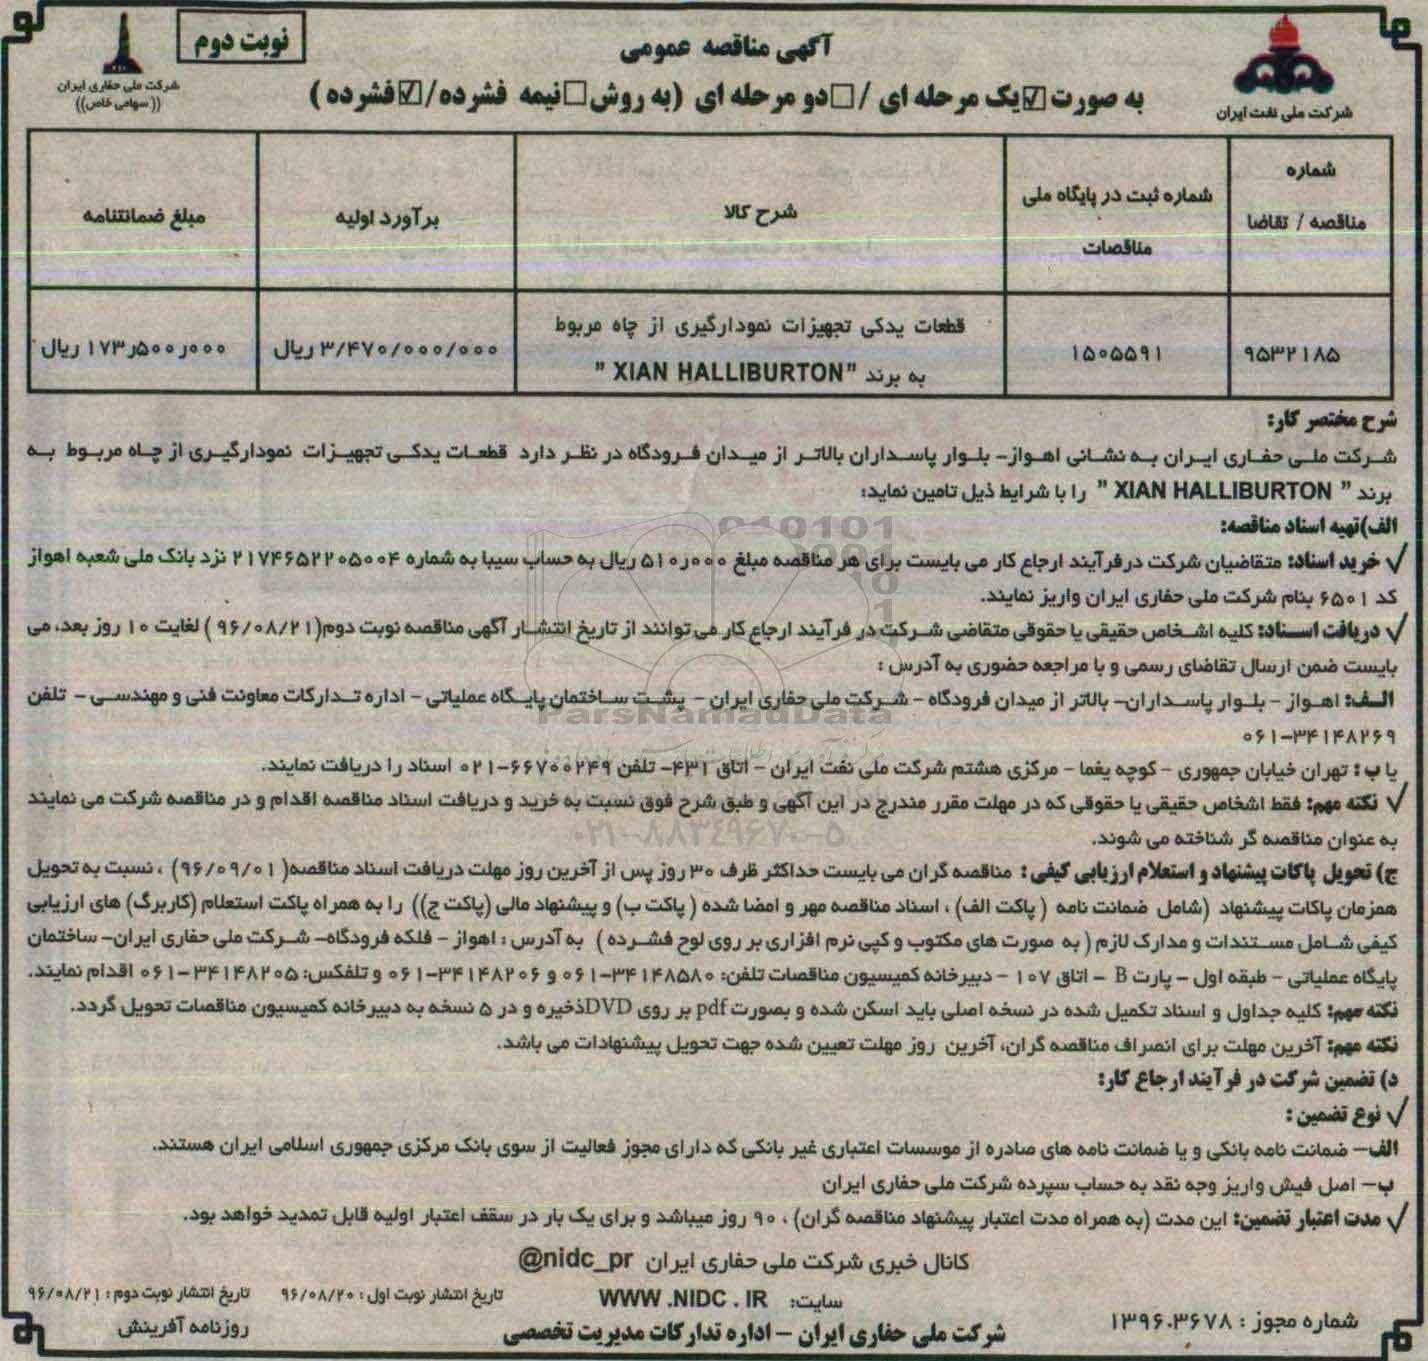 آگهی مناقصه عمومی
نوبت دوم
به صورت ☑یک مرحله ای /□دو مرحله ای (به روش□نیمه فشرده/☑فشرده )
شرکت ملی نفت ایران
شرکت ملی حفاری ایران
((سهامی خاص))
شماره مناقصه / تقاضا
شماره ثبت در پایگاه ملی مناقصات
شرح کالا
برآورد اولیه
مبلغ ضمانتنامه
۹۵۳۲۱۸۵
۱۵۰۵۵۹۱
قطعات یدکی تجهیزات نمودارگیری از چاه مربوط
به برند "XIAN HALLIBURTON "
۳/۴۷۰/۰۰۰/۰۰۰ ریال
۱۷۳ر۵۰۰ر۰۰۰ ریال
شرح مختصر کار:
شرکت ملی حفاری ایران به نشانی اهواز– بلوار پاسداران بالاتر از میدان فرودگاه در نظر دارد قطعات یدکی تجهیزات نمودارگیری از چاه مربوط به
برند " XIAN HALLIBURTON " را با شرایط ذیل تامین نماید:
الف)تهیه اسناد مناقصه:
√ خرید اسناد: متقاضیان شرکت درفرآیند ارجاع کار می بایست برای هر مناقصه مبلغ ۵۱۰ر۰۰۰ ریال به حساب سیبا به شماره ۲۱۷۴۶۵۲۲۰۵۰۰۴ نزد بانک ملی شعبه اهواز
کد ۶۵۰۱ بنام شرکت ملی حفاری ایران واریز نمایند.
√ دریافت اسناد: کلیه اشخاص حقیقی یا حقوقی متقاضی شرکت در فرآیند ارجاع کار می توانند از تاریخ انتشار آگهی مناقصه نوبت دوم(۹۶/۰۸/۲۱ ) لغایت ۱۰ روز بعد، می
بایست ضمن ارسال تقاضای رسمی و با مراجعه حضوری به آدرس :
الف: اهواز – بلوار پاسداران– بالاتر از میدان فرودگاه – شرکت ملی حفاری ایران – پشت ساختمان پایگاه عملیاتی – اداره تدارکات معاونت فنی و مهندسی – تلفن
۰۶۱–۳۴۱۴۸۲۶۹
یا ب : تهران خیابان جمهوری – کوچه یغما – مرکزی هشتم شرکت ملی نفت ایران – اتاق ۴۳۱– تلفن ۶۶۷۰۰۲۴۹–۰۲۱ اسناد را دریافت نمایند.
√ نکته مهم: فقط اشخاص حقیقی یا حقوقی که در مهلت مقرر مندرج در این آگهی و طبق شرح فوق نسبت به خرید و دریافت اسناد مناقصه اقدام و در مناقصه شرکت می نمایند
به عنوان مناقصه گر شناخته می شوند.
ج) تحویل پاکات پیشنهاد و استعلام ارزیابی کیفی : مناقصه گران می بایست حداکثر ظرف ۳۰ روز پس از آخرین روز مهلت دریافت اسناد مناقصه( ۹۶/۰۹/۰۱) ، نسبت به تحویل
همزمان پاکات پیشنهاد (شامل ضمانت نامه ( پاکت الف) ، اسناد مناقصه مهر و امضا شده ( پاکت ب) و پیشنهاد مالی (پاکت ج)) را به همراه پاکت استعلام (کاربرگ) های ارزیابی
کیفی شامل مستندات و مدارک لازم ( به صورت های مکتوب و کپی نرم افزاری بر روی لوح فشرده ) به آدرس : اهواز – فلکه فرودگاه– شرکت ملی حفاری ایران– ساختمان
پایگاه عملیاتی – طبقه اول – پارت B – اتاق ۱۰۷ – دبیرخانه کمیسیون مناقصات تلفن: ۳۴۱۴۸۵۸۰–۰۶۱ و ۳۴۱۴۸۲۰۶–۰۶۱ و تلفکس: ۳۴۱۴۸۲۰۵–۰۶۱ اقدام نمایند.
نکته مهم: کلیه جداول و اسناد تکمیل شده در نسخه اصلی باید اسکن شده و بصورت pdf بر روی DVDذخیره و در ۵ نسخه به دبیرخانه کمیسیون مناقصات تحویل گردد.
نکته مهم: آخرین مهلت برای انصراف مناقصه گران، آخرین روز مهلت تعیین شده جهت تحویل پیشنهادات می باشد.
د) تضمین شرکت در فرآیند ارجاع کار:
√ نوع تضمین :
الف– ضمانت نامه بانکی و یا ضمانت نامه های صادره از موسسات اعتباری غیر بانکی که دارای مجوز فعالیت از سوی بانک مرکزی جمهوری اسلامی ایران هستند.
ب– اصل فیش واریز وجه نقد به حساب سپرده شرکت ملی حفاری ایران
√ مدت اعتبار تضمین: این مدت (به همراه مدت اعتبار پیشنهاد مناقصه گران) ، ۹۰ روز میباشد و برای یک بار در سقف اعتبار اولیه قابل تمدید خواهد بود.
کانال خبری شرکت ملی حفاری ایران @nidc_pr
سایت: WWW .NIDC . IR
تاریخ انتشار نوبت اول : ۹۶/۰۸/۲۰
تاریخ انتشار نوبت دوم : ۹۶/۰۸/۲۱
شماره مجوز : ۱۳۹۶.۳۶۷۸
شرکت ملی حفاری ایران – اداره تدارکات مدیریت تخصصی
روزنامه آفرینش
ParsNamadData
۰۲۱–۸۸۳۴۹۶۷۰–۵